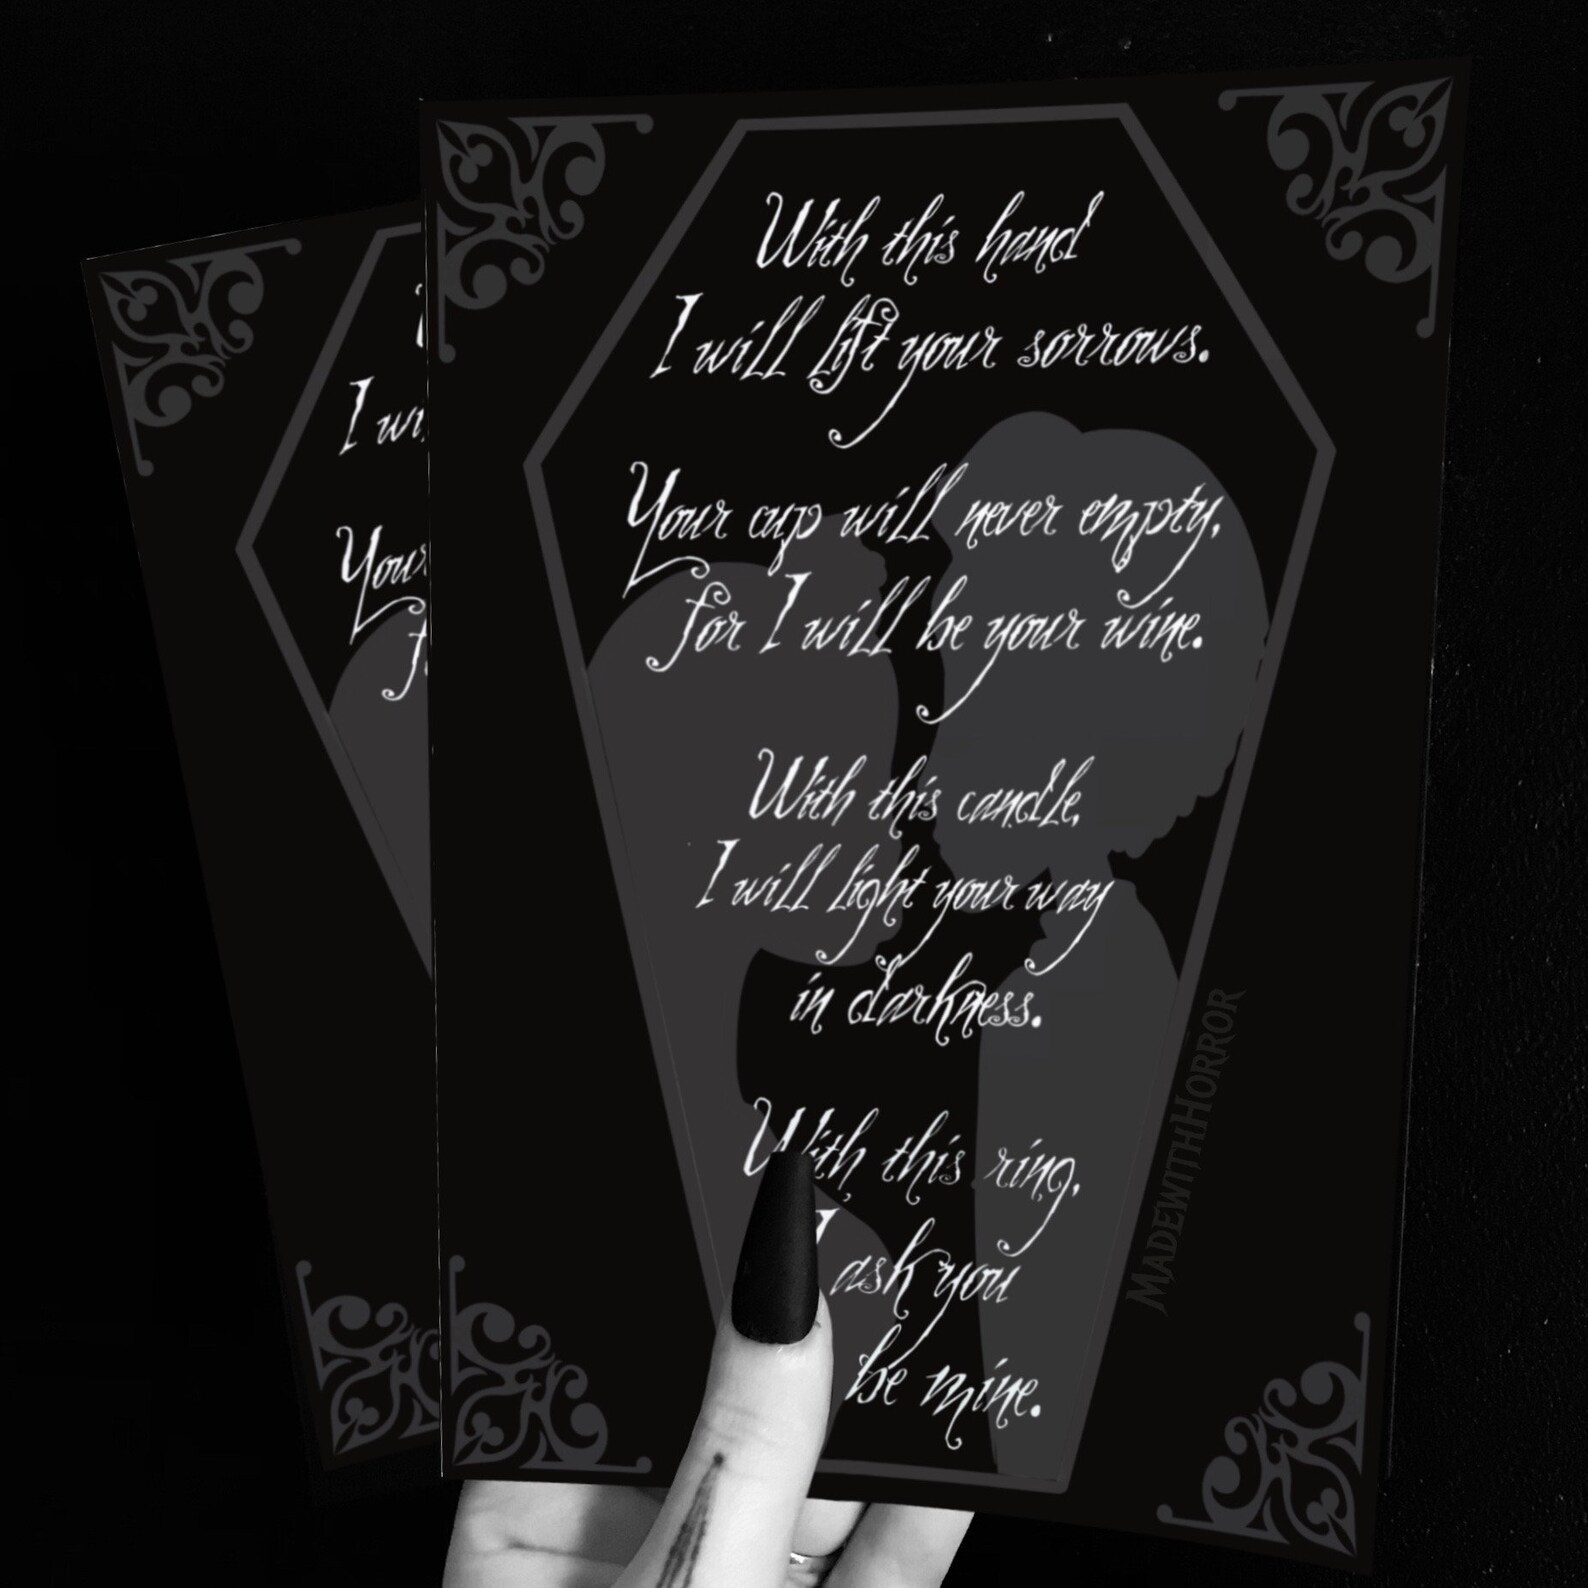 With this hand
I will lift your sorrows.
Your cup will never empty,
for I will be your wine.
With this candle,
I will light your way
in darkness.
With this ring,
I ask you
be mine.
MADEWITHHORROR
I
Your